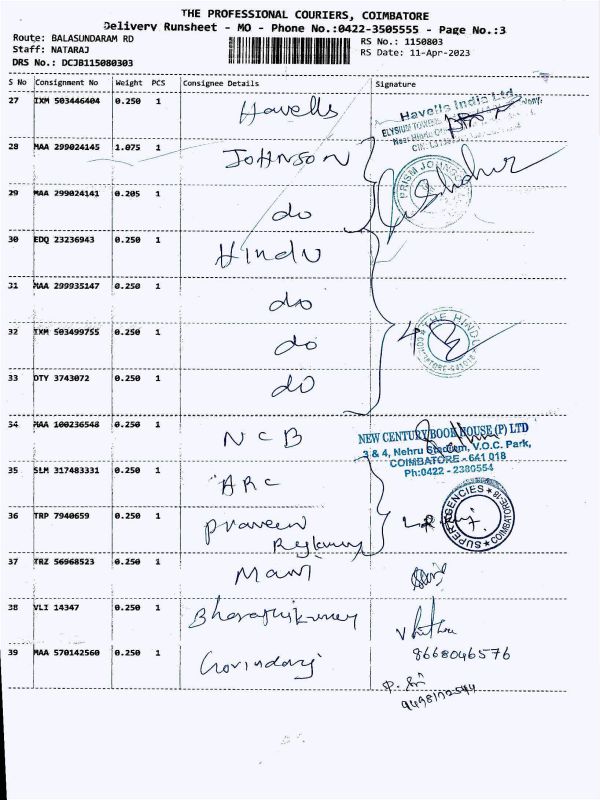 THE PROFESSIONAL COURIERS, COIMBATORE
Delivery Runsheet - MO - Phone No.:0422-3505555 - Page No.:3
Route: BALASUNDARAM RD
RS No.: 1150803
Staff: NATARAJ
RS Date: 11-Apr-2023
DRS No.: DCJB115080303
S No Consignment No Weight PCS Consignee Details Signature
27 IXM 503446404 0.250 1 Havells
Havells India Ltd.
28 MAA 299024145 1.075 1 Johnson
29 MAA 299024141 0.205 1 do
PRISM JOHNSON
30 EDQ 23236943 0.250 1 Hindu
31 MAA 299935147 0.250 1 do
32 IXM 503499755 0.250 1 do
4
THE HINDU
COIMBATORE-641018
33 DTY 3743072 0.250 1 do
34 MAA 100236548 0.250 1 NCB
NEW CENTURY BOOK HOUSE (P) LTD
3 & 4, Nehru Stadium, V.O.C. Park,
COIMBATORE - 641 018
Ph:0422 - 2380554
35 SLM 317483331 0.250 1 ARC
36 TRP 7940659 0.250 1 Praveen
SUPER AGENCIES ★ COIMBATORE-18 ★
37 TRZ 56968523 0.250 1 Mani
38 VLI 14347 0.250 1 Bharathikumar
8668046576
39 MAA 570142560 0.250 1 Govindaraj